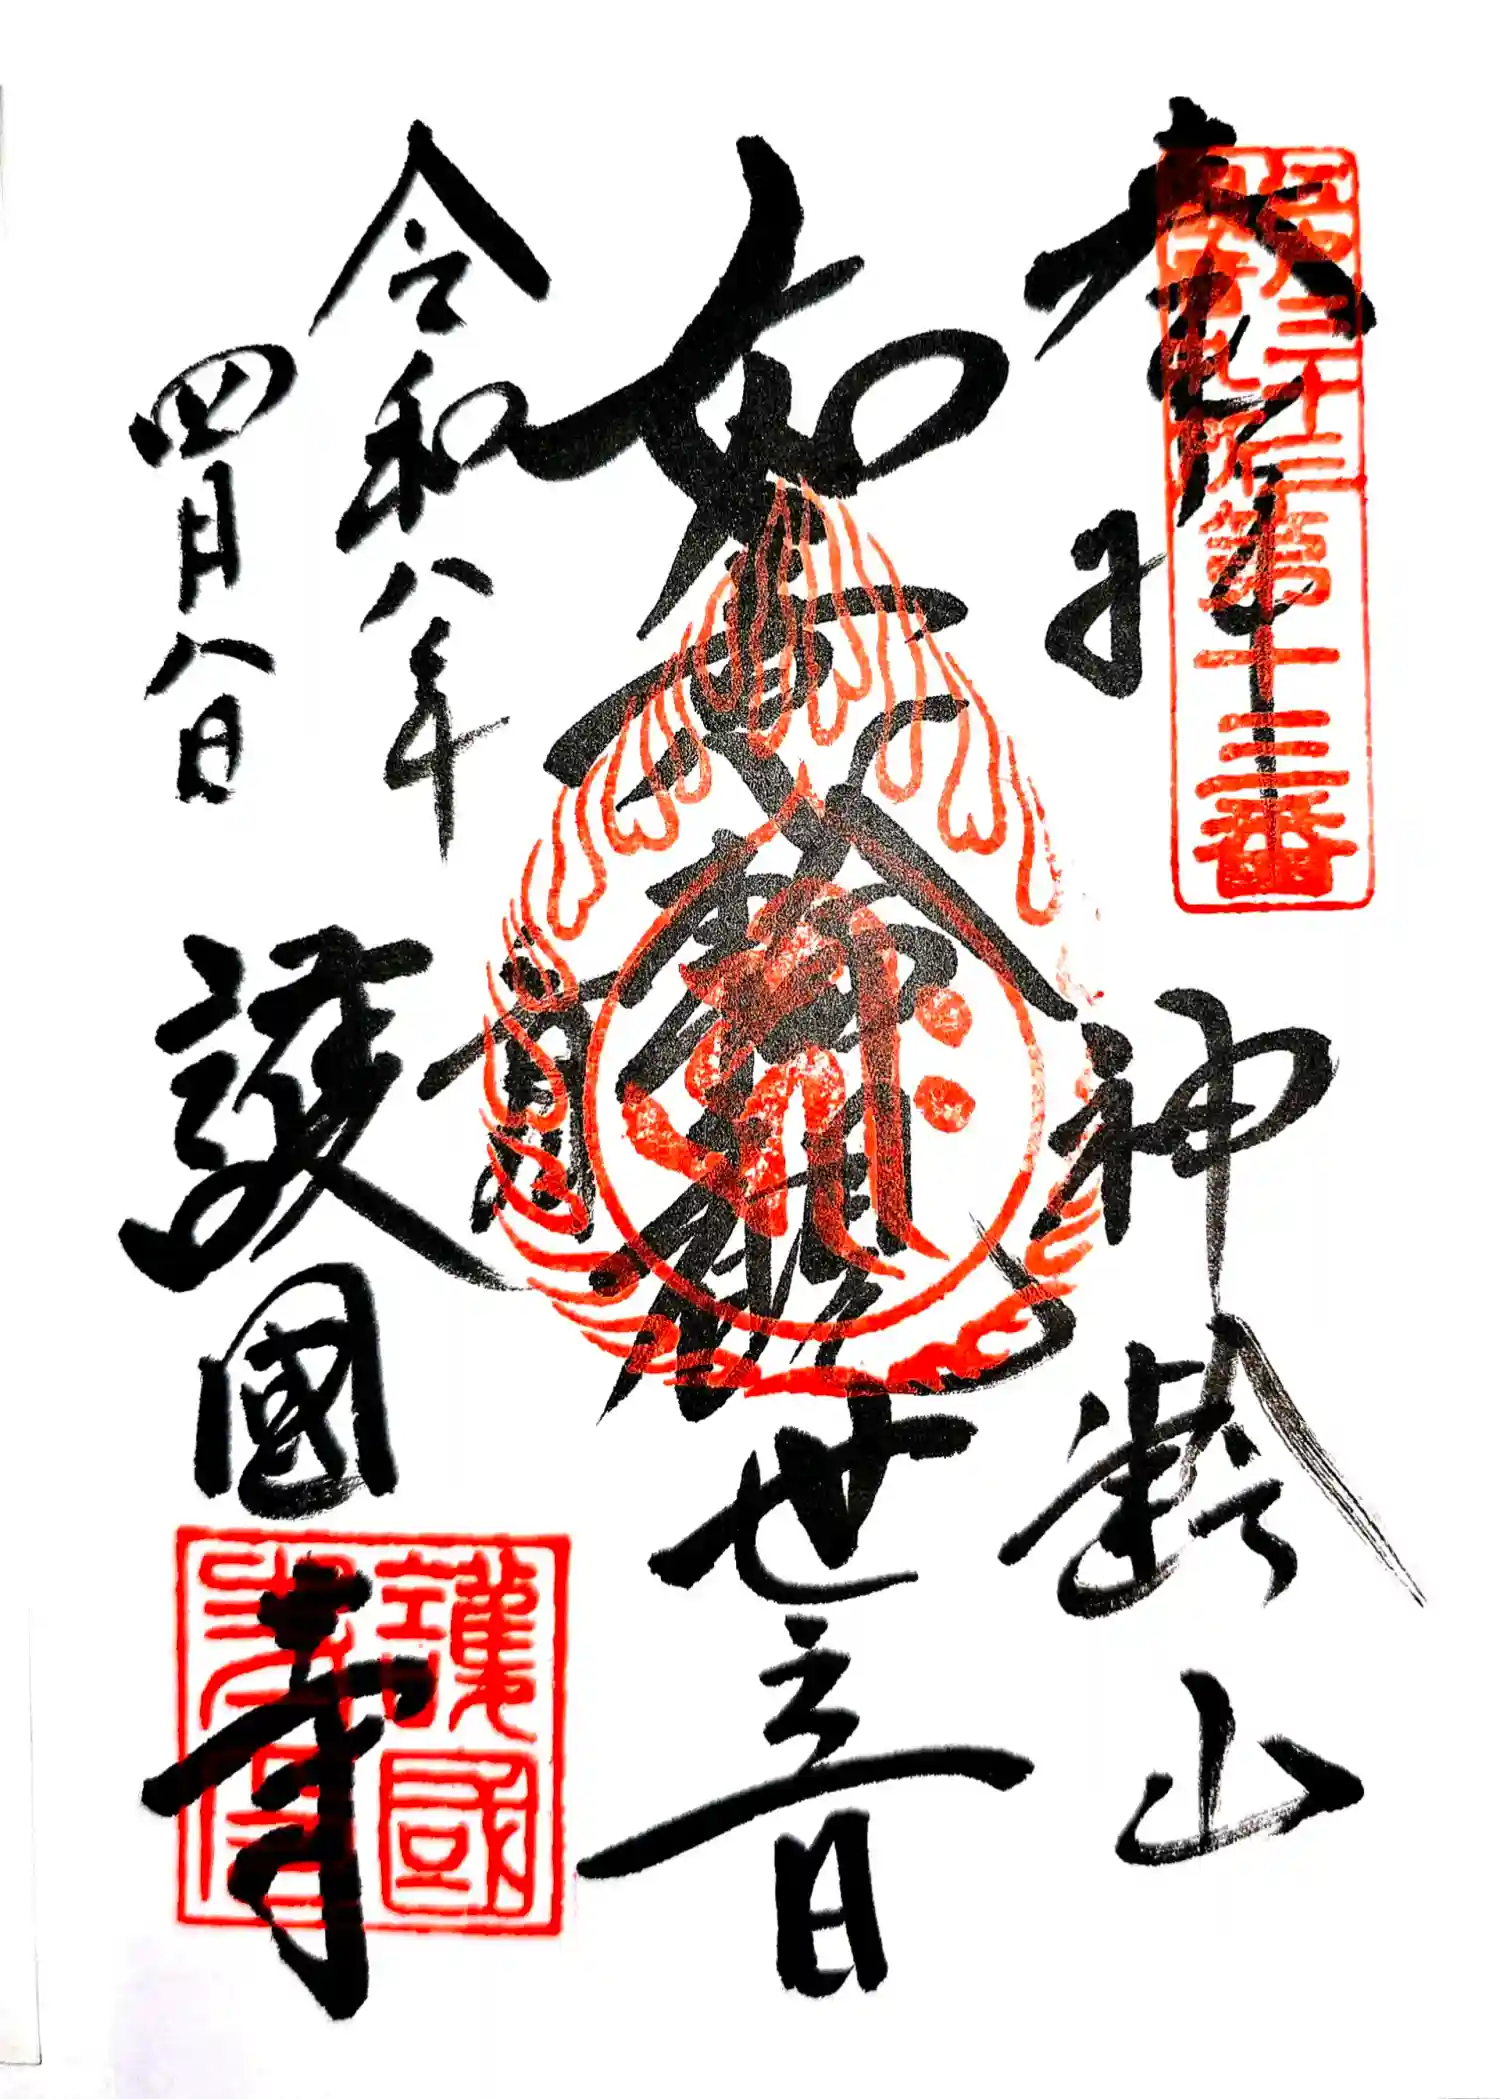 奉拝
江戸三十三
観音札所
第十三番
神齢山
如意輪観世音
令和八年
四月八日
護國寺
護國
寺印